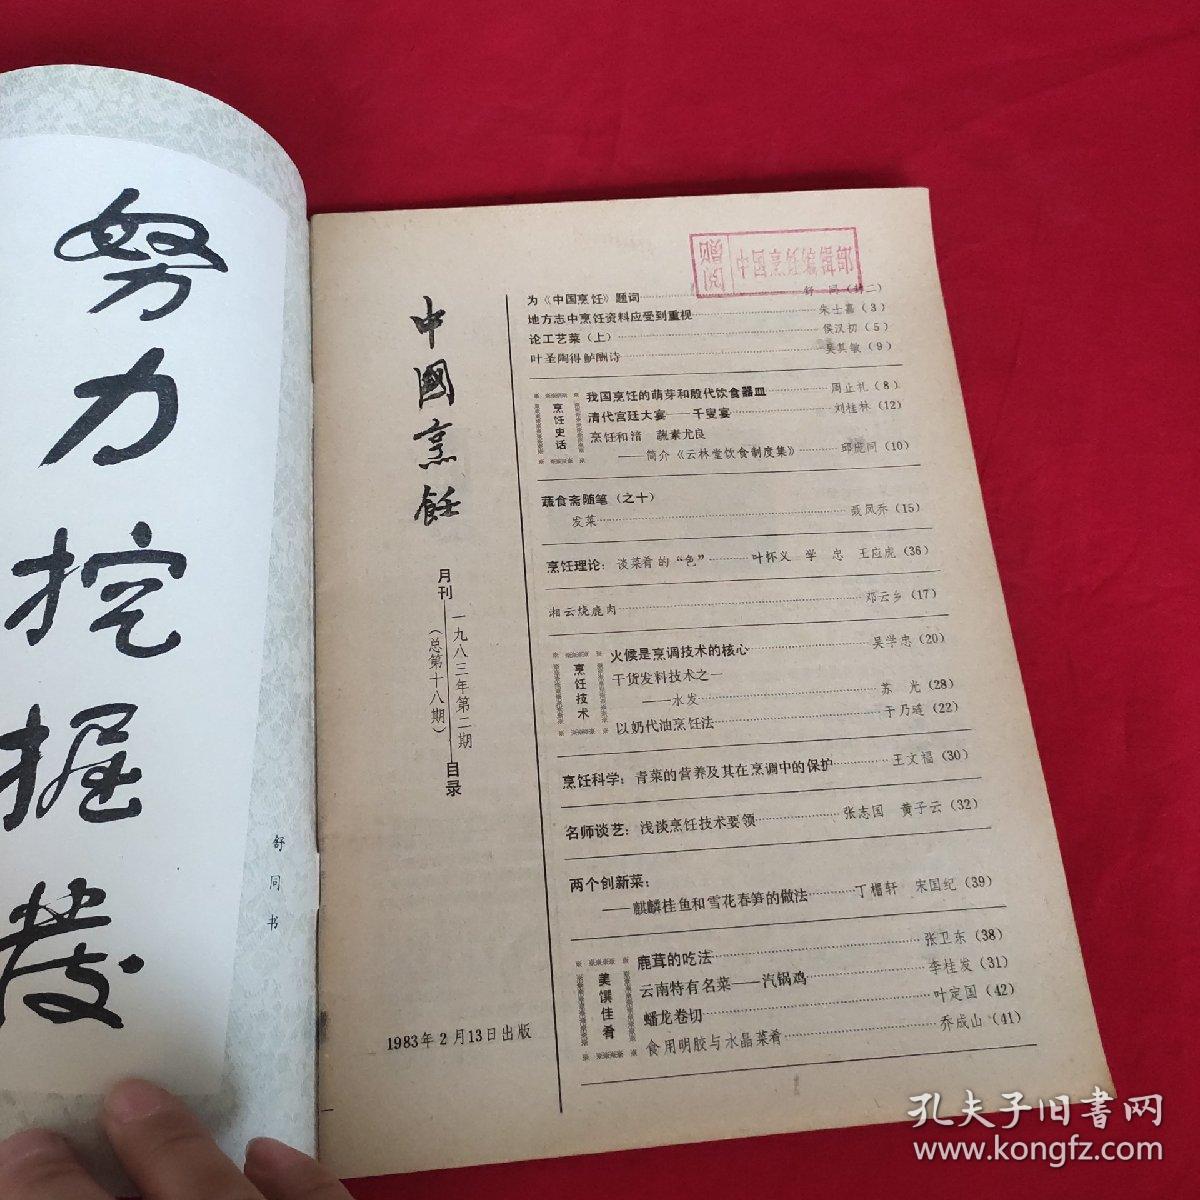 努力挖掘发
舒同书
中國烹飪
月刊
一九八三年第二期
(总第十八期)
目录
1983年2月13日出版
赠阅
中国烹饪编辑部
为《中国烹饪》题词 舒 同(封二)
地方志中烹饪资料应受到重视 朱士嘉(3)
论工艺菜(上) 侯汉初(5)
叶圣陶得鲈酬诗 吴其敏(9)
烹饪史话
我国烹饪的萌芽和殷代饮食器皿 周止礼(8)
清代宫廷大宴——千叟宴 刘桂林(12)
烹饪和湆 蔬素尤良
——简介《云林堂饮食制度集》 邱庞同(10)
蔬食斋随笔(之十)
发菜 聂凤乔(15)
烹饪理论:谈菜肴的“色” 叶怀义 学 忠 王应虎(36)
湘云烧鹿肉 邓云乡(17)
烹饪技术
火候是烹调技术的核心 吴学忠(20)
干货发料技术之一
——水发 苏 光(28)
以奶代油烹饪法 于乃琏(22)
烹饪科学:青菜的营养及其在烹调中的保护 王文福(30)
名师谈艺:浅谈烹饪技术要领 张志国 黄子云(32)
两个创新菜:
——麒麟桂鱼和雪花春笋的做法 丁楣轩 宋国纪(39)
美馔佳肴
鹿茸的吃法 张卫东(38)
云南特有名菜——汽锅鸡 李桂发(31)
蟠龙卷切 叶定国(42)
食用明胶与水晶菜肴 乔成山(41)
孔夫子旧书网
www.kongfz.com